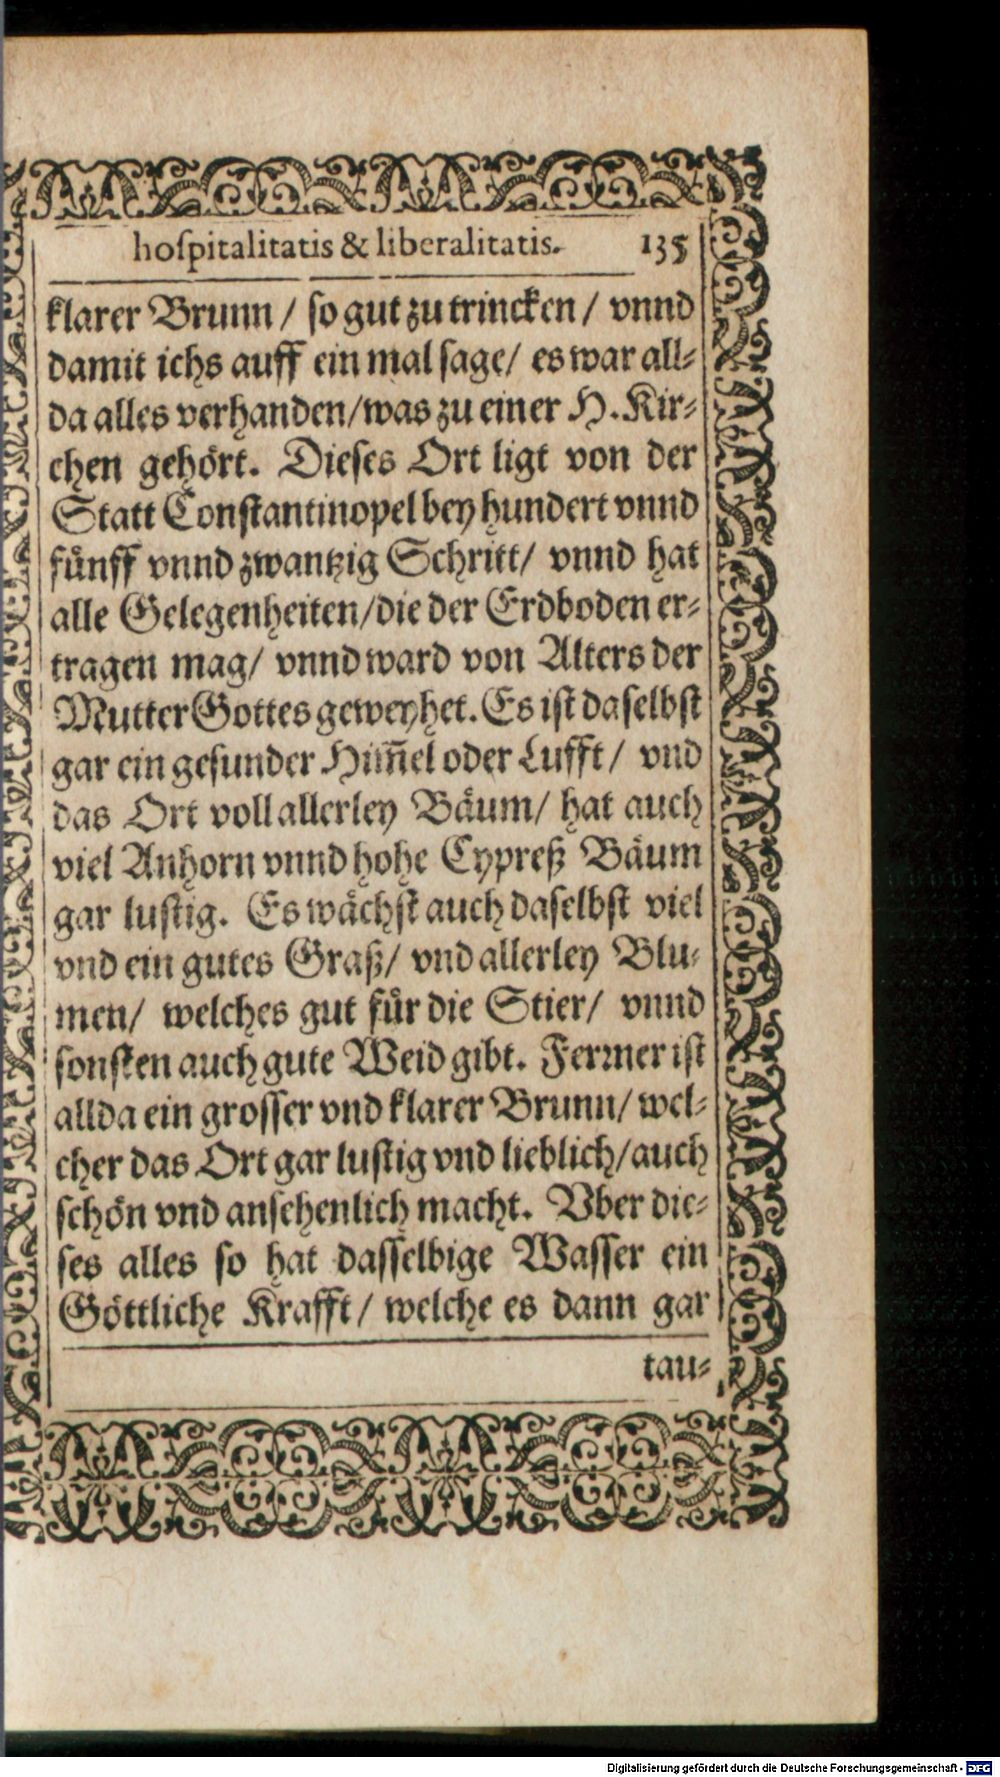 hospitalitatis & liberalitatis. 135
klarer Brunn / so gut zu trincken / vnnd
damit ichs auff ein mal sage / es war all-
da alles verhanden / was zu einer H. Kir-
chen gehört. Dieses Ort ligt von der
Statt Constantinopel bey hundert vnnd
fünff vnnd zwantzig Schritt / vnnd hat
alle Gelegenheiten / die der Erdboden er-
tragen mag / vnnd ward von Alters der
Mutter Gottes geweyhet. Es ist daselbst
gar ein gesunder Him̃el oder Lufft / vnd
das Ort voll allerley Bäum / hat auch
viel Anhorn vnnd hohe Cypreß Bäum
gar lustig. Es wächst auch daselbst viel
vnd ein gutes Graß / vnd allerley Blu-
men / welches gut für die Stier / vnnd
sonsten auch gute Weid gibt. Ferrner ist
allda ein grosser vnd klarer Brunn / wel-
cher das Ort gar lustig vnd lieblich / auch
schön vnd ansehenlich macht. Vber die-
ses alles so hat dasselbige Wasser ein
Göttliche Krafft / welche es dann gar
tau-
Digitalisierung gefördert durch die Deutsche Forschungsgemeinschaft - DFG